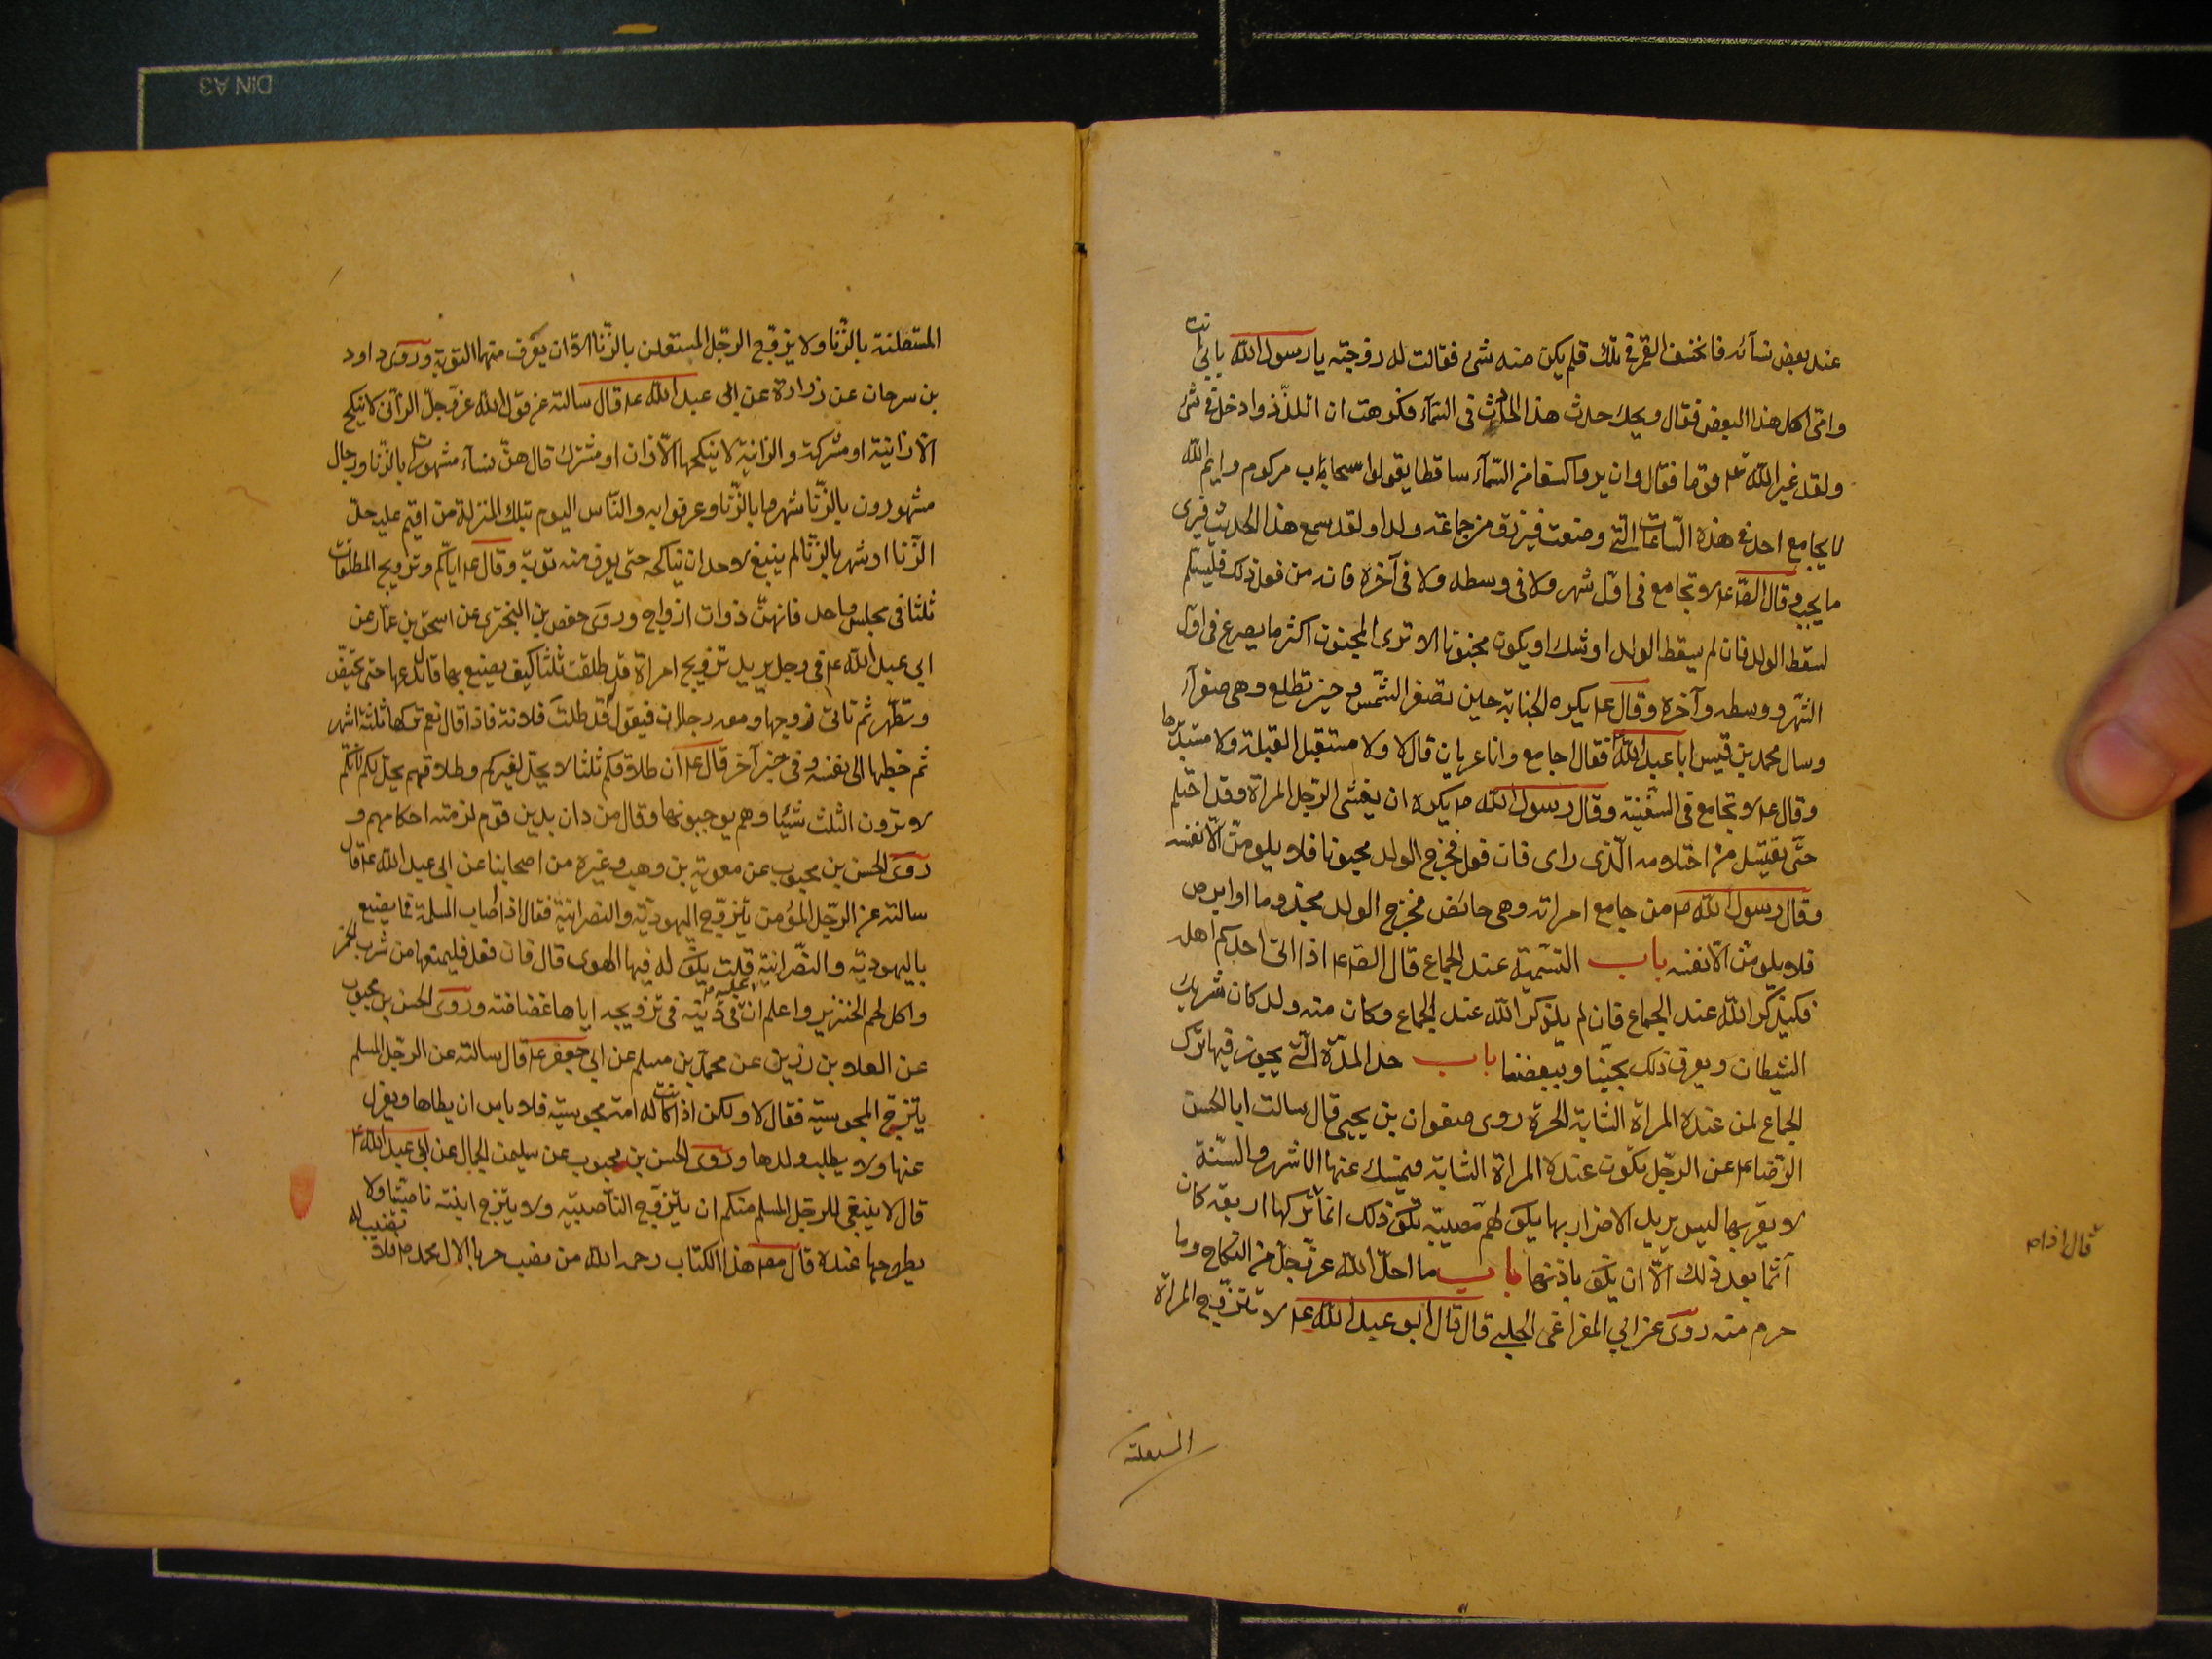 عند بعض نسآئه فانخسف القمر فى تلك فلم يكن منه شىء فقالت له زوجته يا رسول الله بابى انت
وامى اكل هذا البغض فقال ويحك حدث هذا الحادث فى السّمآء فكرهت ان اتلذّذ وادخل فى شئ
ولقد عيّر الله تعـ قوما فقال وان يروا كسفا من السّمآء ساقطا يقولوا سحاب مركوم وايم الله
لا يجامع احد فى هذه السّاعات الّتى وصفت فيرزق من جماعه ولدا ولقد سمع هذا الحديث فيرى
ما يحب وقال الصّ عـ لا تجامع فى اوّل شهر ولا فى وسطه ولا فى آخره فانه من فعل ذلك فليسلم
لسقط الولد فان لم يسقط الولد اوشك او يكون مجنونا الا ترى المجنون اكثر ما يصرع فى اوّل
الشهر ووسطه وآخره وقال عـ يكره الجنابة حين تصفر الشّمس وحين تطلع وهى صفرآء
وسال محمد بن قيس ابا عبد الله فقال اجامع وانا عريان قال لا ولا مستقبل القبلة ولا مستدبرها
وقال عـ لا تجامع فى السّفينة وقال رسول الله صـ يكره ان يغشى الرّجل المراة وقد احتلم
حتّى يغتسل من احتلامه الّذى راى فان فعل فخرج الولد مجنونا فلا يلومنّ الّا نفسه
وقال رسول الله صـ من جامع امراته وهى حائض فخرج الولد مجذوما او ابرص
فلا يلومنّ الّا نفسه باب التسّمية عند الجماع قال الصّ عـ اذا اتى احدكم اهله
فليذكر الله عند الجماع فان لم يذكر الله عند الجماع وكان منه ولد كان شريك
الشيطان ويعرف ذلك بحبّنا وببغضنا باب حد المدّة الّتى يجوز فيها ترك
الجماع لمن عنده المراة الشابة الحرة روى صفوان بن يحيى قال سالت ابا الحسن
الرّضا عـ عن الرجّل يكون عنده المراة الشابة فيمسك عنها الاشهر والسّنة
لا يقربها ليس يريد الاضرار بها يكون لهم مصيبة يكون ذلك اثما تركها اربعة كان
آثما بعد ذلك الّا ان يكون باذنها باب ما احلّ الله عزّوجلّ من النكاح وما
حرم منه روى عن ابى المغرا عن الحلبى قال قال ابو عبد الله عـ لا تتزوّج المراة
قال اذا م
المستعلنة
المستعلنة بالزّنا ولا يزوّج الرجّل المستعلن بالزّنا الّا ان يعرف منهما التوبة وروى داود
بن سرحان عن زرارة عن ابى عبد الله عـ قال سالته عن قول الله عزّوجلّ الزّانى لا ينكح
الّا زانية او مشركة والزانية لا ينكحها الّا زان او مشرك قال هنّ نسآء مشهورات بالزّنا ورجال
مشهورون بالزّنا شهروا بالزّنا وعرفوا به والنّاس اليوم بتلك المنزلة من اقيم عليه حدّ
الزّنا او شهر بالزّنا لم ينبغ لاحد ان يناكحه حتى يعرف منه توبة وقال عـ ايّاكم وتزويج المطلقات
ثلثا فى مجلس واحد فانهنّ ذوات ازواج وروى حفص بن البخترى عن اسحق بن عمّار عن
ابى عبد الله عـ فى رجل يريد تزويج امراة قد طلقت ثلثا كيف يصنع بها قال يدعها حتى تحيض
وتطهر ثم ياتى زوجها ومعه رجلان فيقول قد طلقت فلانة فاذا قال نعم تركها ثلثة اشهر
ثم خطبها الى نفسه وفى خبر آخر قال عـ ان طلاقكم ثلثا لا يحلّ لغيركم وطلاقهم يحلّ لكم لانكم
لا ترون الثلث شيئا وهم يوجبونها وقال من دان بدين قوم لزمته احكامهم و
روى الحسن بن محبوب عن معوية بن وهب وغيره من اصحابنا عن ابى عبد الله عـ قال
سالته عن الرجّل المؤمن يتزوّج اليهوديّة والنصرانيّة فقال اذا اصاب المسلمة فما يصنع
باليهوديّة والنصّرانيّة قلت يكون له فيها الهوى قال فان فعل فليمنعها من شرب الخمر
واكل لحم الخنزير واعلم انّ عليه فى دينه فى تزويجه اياها غضاضة وروى الحسن بن محبوب
عن العلا بن رزين عن محمّد بن مسلم عن ابى جعفر عـ قال سالته عن الرجّل المسلم
يتزوّج المجوسيّة فقال لا ولكن اذا كانت له امة مجوسيّة فلا باس ان يطاها ويعزل
عنها ولا يطلب ولدها وروى الحسن بن محبوب عن سليمن الجمال عن ابى عبد الله عـ
قال لا ينبغى للرجّل المسلم منكم ان يتزوّج النّاصبيّة ولا يتزوّج ابنته ناصبيّا ولا
يطرحها عنده قال مصـ هذا الكتاب رحمه الله من نصب حربا لال محمد صـ فلا نصيب له